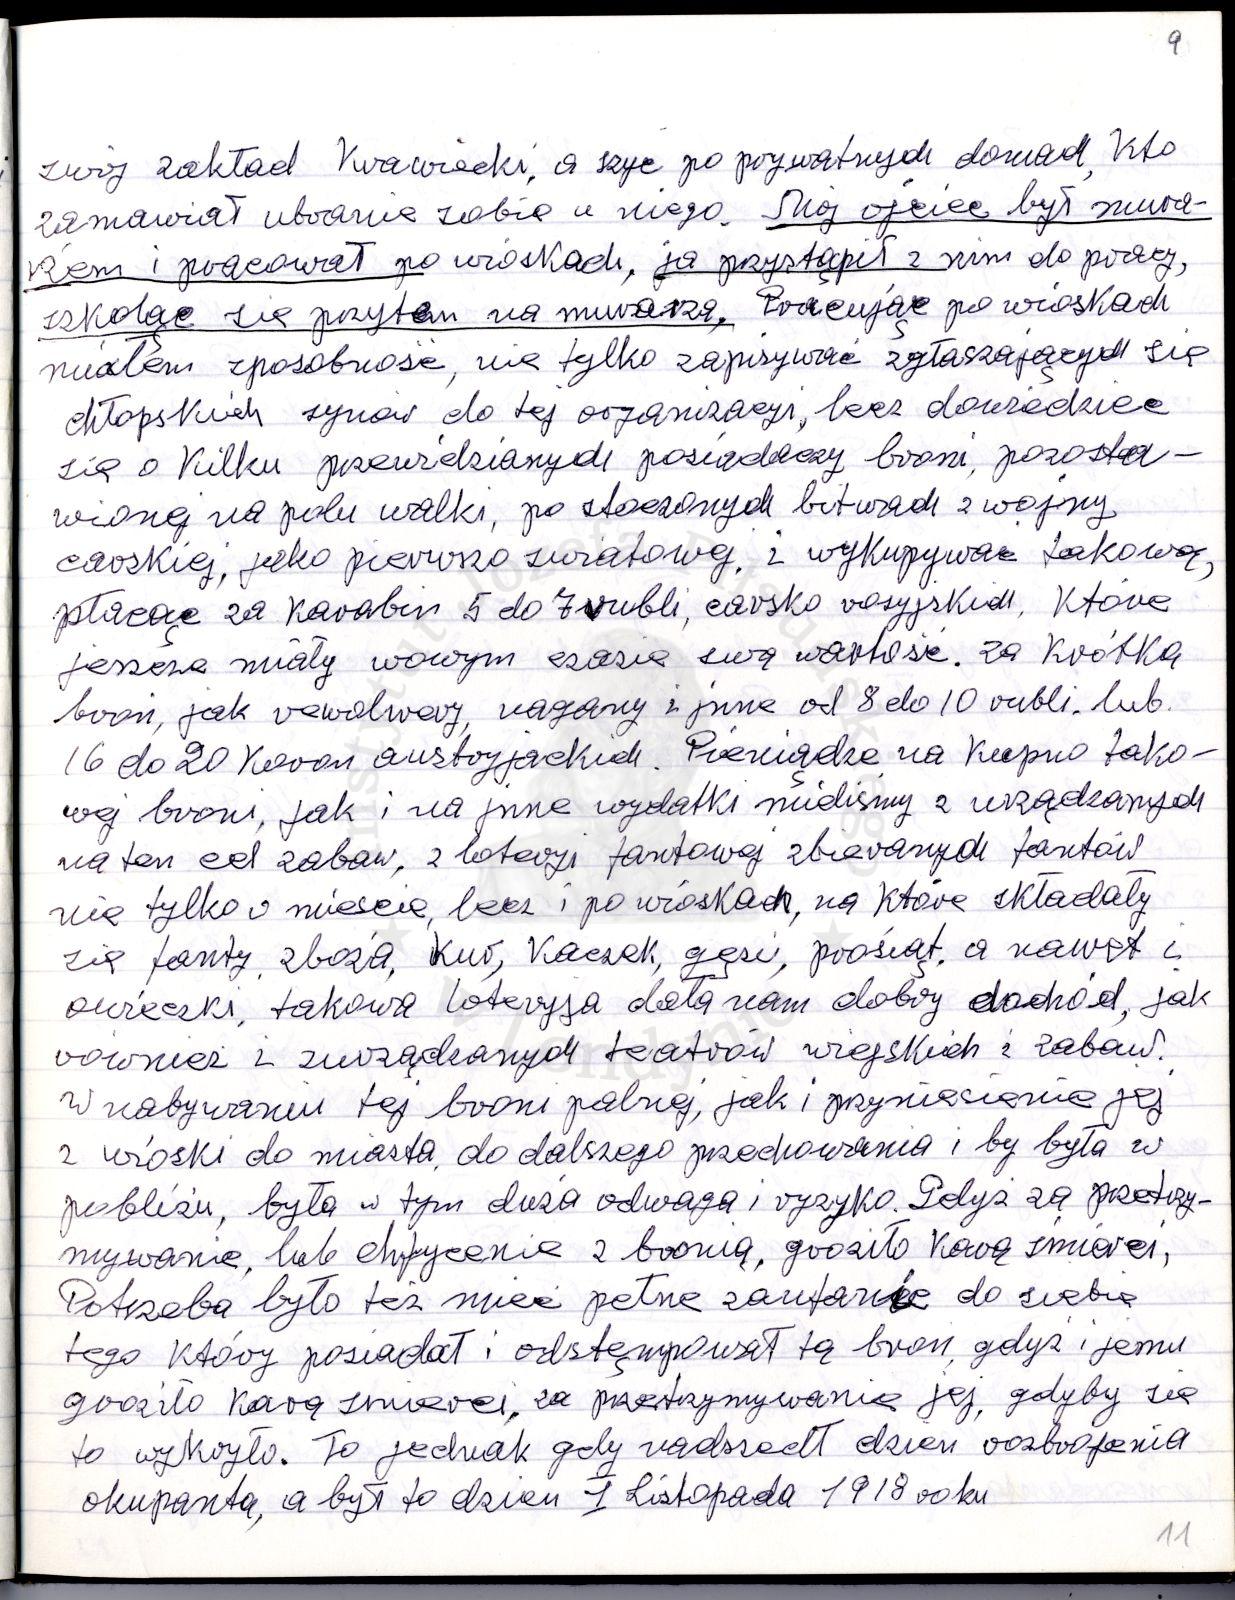 9
swój zakład Krawiecki, a szyć po prywatnych domach, Kto
zamawiał ubranie sobie u niego. Mój ojciec był mura-
rzem i pracował po wioskach, ja przystąpił z nim do pracy,
szkoląc się przytem na murarza. Pracując po wioskach
miałem sposobność, nie tylko zapisywać zgłaszających się
chłopskich synów do tej organizacyi, lecz dowiedzieć
się o Kilku przewidzianych posiadaczy broni, pozosta-
wionej na polu walki, po stoczonych bitwach z wojny
carskiej, jako pierwszo swiatowej, i wykupywać takową,
płacąc za Karabin 5 do 7 rubli, carsko rosyjskich, Które
jeszcze miały wowym czasie swą wartość. za Krótką
broń, jak rewolwery, nagany i jnne od 8 do 10 rubli. lub.
16 do 20 Koron austryjackich. Pieniądze na Kupno tako-
wej broni, jak i na jnne wydatki mieliśmy z urządzanych
na ten cel zabaw, z loteryi fantowej zbieranych fantów
nie tylko w mieście, lecz i po wioskach, na Które składały
się fanty, zboża, Kur, Kaczek, gęsi, prosiąt, a nawet i
owieczki, takowa loteryja dała nam dobry dochód, jak
również z zurządzanych teatrów wiejskich i zabaw.
W nabywaniu tej broni palnej, jak i przyniesienie jej
z wioski do miasta, do dalszego przechowania i by była w
pobliżu, była w tym duża odwaga i ryzyko. Gdyż za przetrzy-
mywanie, lub chfycenie z bronią, groziło Karą śmierci,
Potrzeba było też mieć pełne zaufanie do siebie
tego Który posiadał i odstęmpował tą broń, gdyż i jemu
groziło Karą smierci, za przetrzymywanie jej, gdyby się
to wykryło. To jednak gdy nadszedł dzień rozbrojenia
okupanta, a był to dzien 1 Listopada 1918 roku
11
Instytut Józefa Piłsudskiego
w Londynie